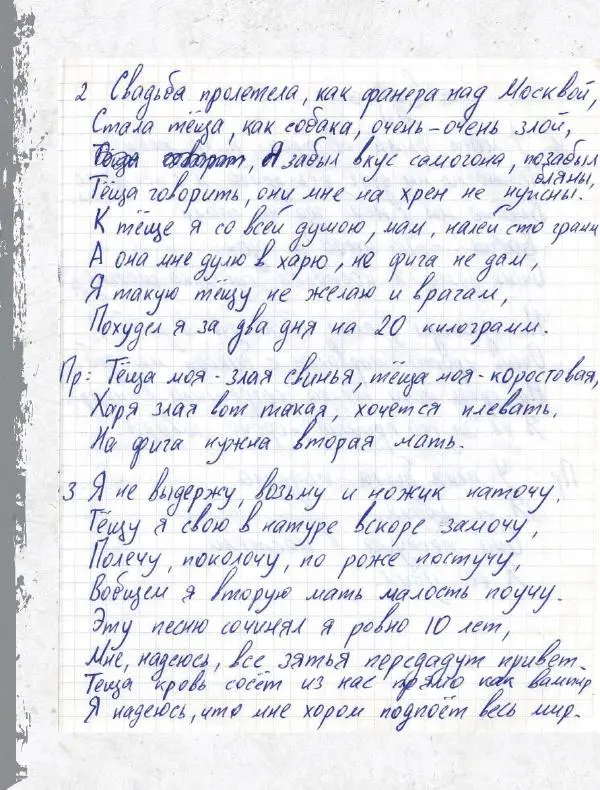 2 Свадьба пролетела, как фанера над Москвой,
Стала тёща, как собака, очень-очень злой,
Я забыл вкус самогона, позабыл
блины,
Тёща говорить, они мне на хрен не нужны.
К тёще я со всей душою, мам, налей сто грамм
А она мне дулю в харю, не фига не дам,
Я такую тёщу не желаю и врагам,
Похудел я за два дня на 20 килограмм.
Пр: Тёща моя - злая свинья, тёща моя - коростовая,
Харя злая вот такая, хочется плевать,
На фига нужна вторая мать.
3 Я не выдержу, возьму и ножик наточу,
Тёщу я свою в натуре вскоре замочу,
Полечу, поколочу, по роже постучу,
Вобщем я вторую мать малость поучу.
Эту песню сочинял я ровно 10 лет,
Мне, надеюсь, все зятья передадут привет.
Теща кровь сосёт из нас прямо как вампир
Я надеюсь, что мне хором подпоёт весь мир.